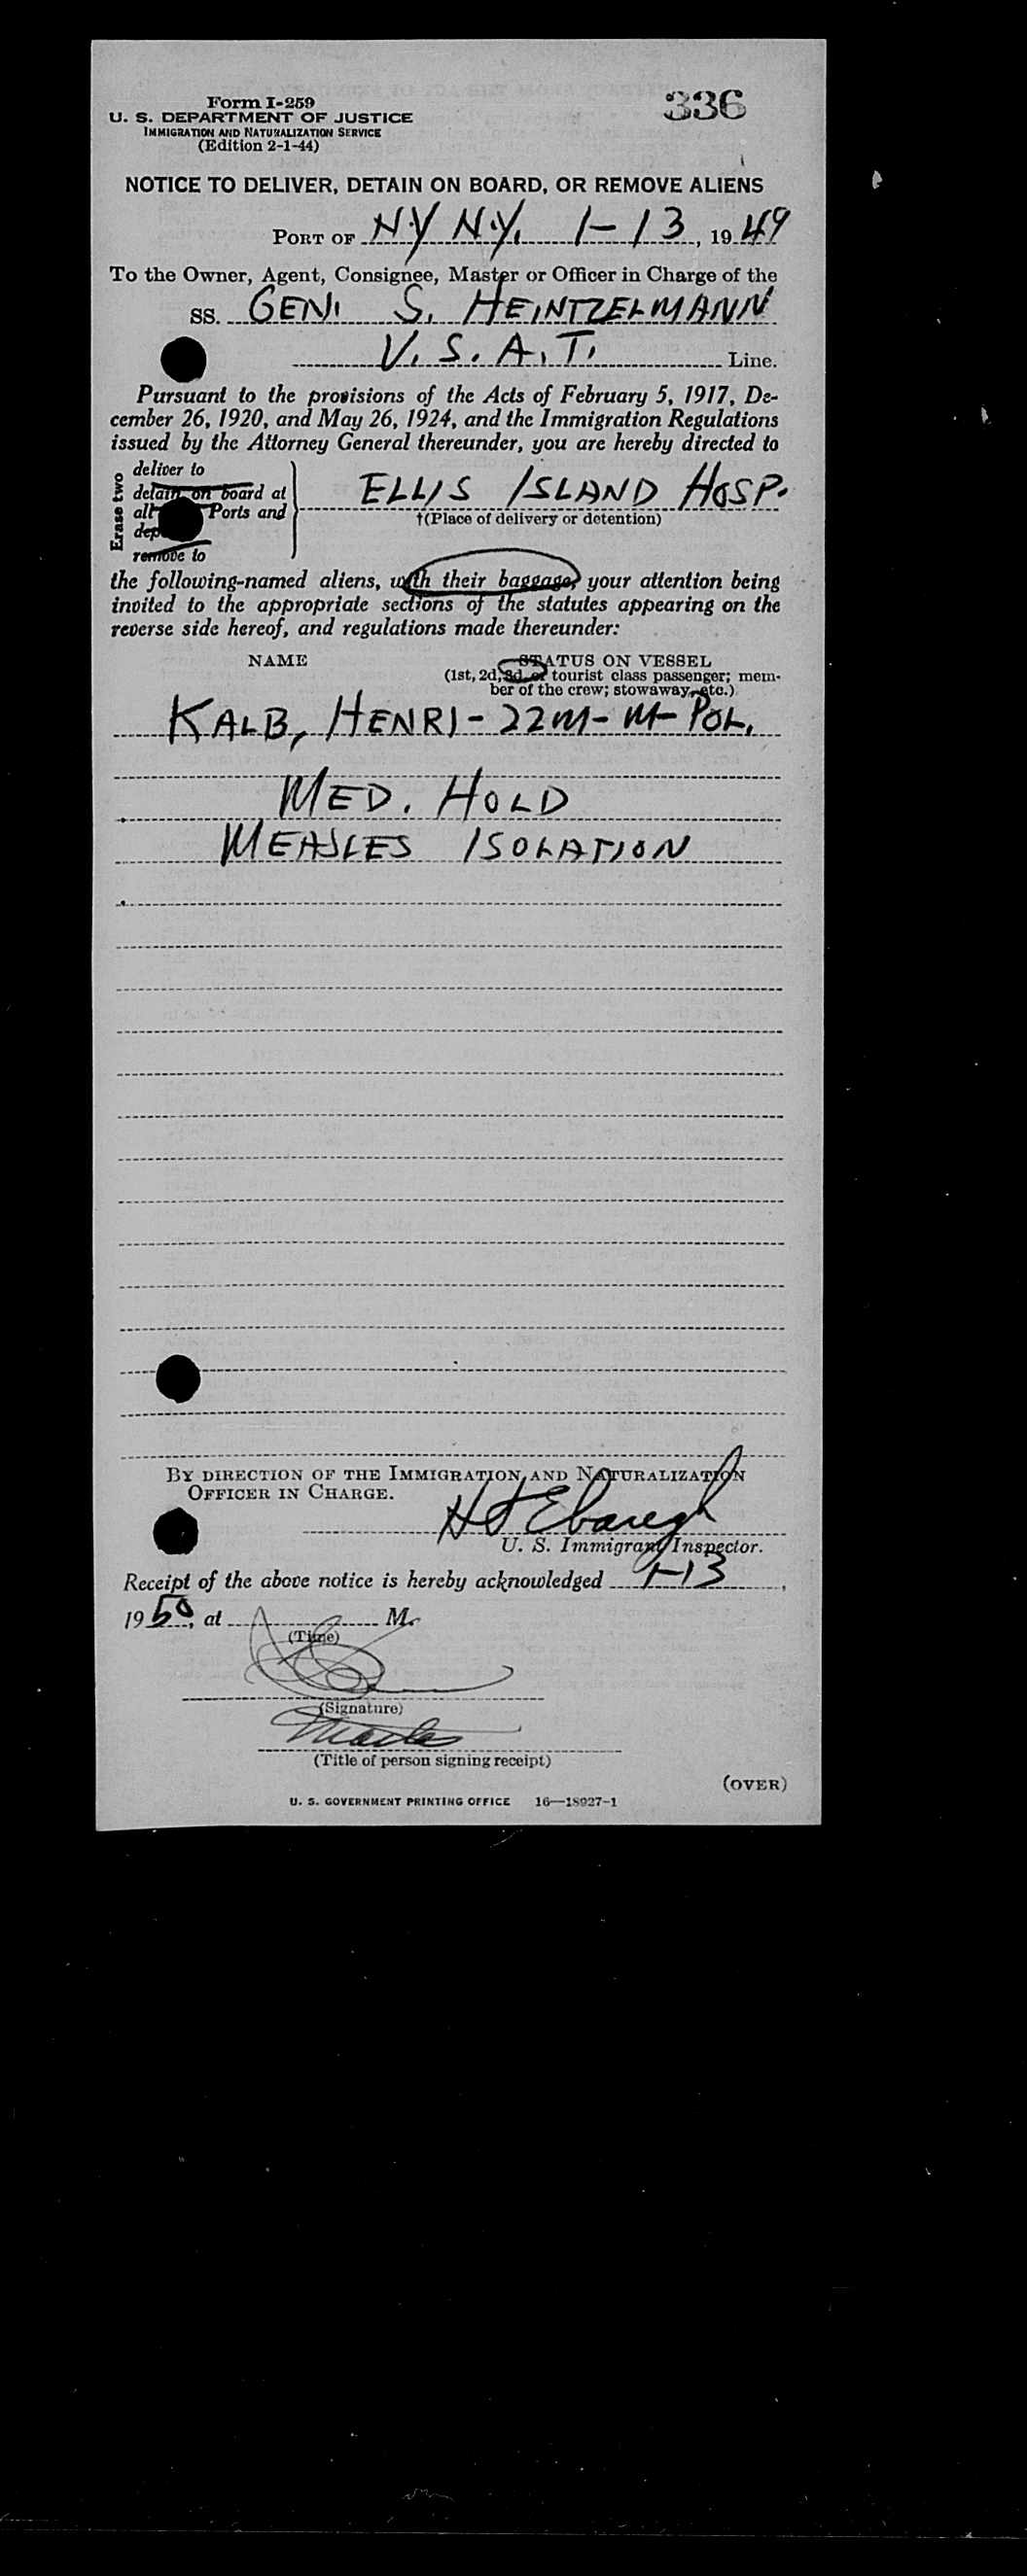 336
Form I-259
U. S. DEPARTMENT OF JUSTICE
IMMIGRATION AND NATURALIZATION SERVICE
(Edition 2-1-44)
NOTICE TO DELIVER, DETAIN ON BOARD, OR REMOVE ALIENS
PORT OF N.Y N.Y. 1-13, 1949
To the Owner, Agent, Consignee, Master or Officer in Charge of the
SS. GEN. S. HEINTZELMANN
U.S.A.T. Line.
Pursuant to the provisions of the Acts of February 5, 1917, De-
cember 26, 1920, and May 26, 1924, and the Immigration Regulations
issued by the Attorney General thereunder, you are hereby directed to
Erase two
deliver to
detain on board at
all Ports and
remove to
ELLIS ISLAND HOSP.
†(Place of delivery or detention)
the following-named aliens, with their baggage, your attention being
invited to the appropriate sections of the statutes appearing on the
reverse side hereof, and regulations made thereunder:
NAME STATUS ON VESSEL
(1st, 2d, 3d, or tourist class passenger; mem-
ber of the crew; stowaway, etc.)
KALB, HENRI - 22M - M - POL.
MED. HOLD
MEASLES ISOLATION
BY DIRECTION OF THE IMMIGRATION AND NATURALIZATION
OFFICER IN CHARGE.
U. S. Immigrant Inspector.
Receipt of the above notice is hereby acknowledged 1-13,
1950, at M.
(Time)
(Signature)
Master
(Title of person signing receipt)
(OVER)
U. S. GOVERNMENT PRINTING OFFICE 16—18927-1